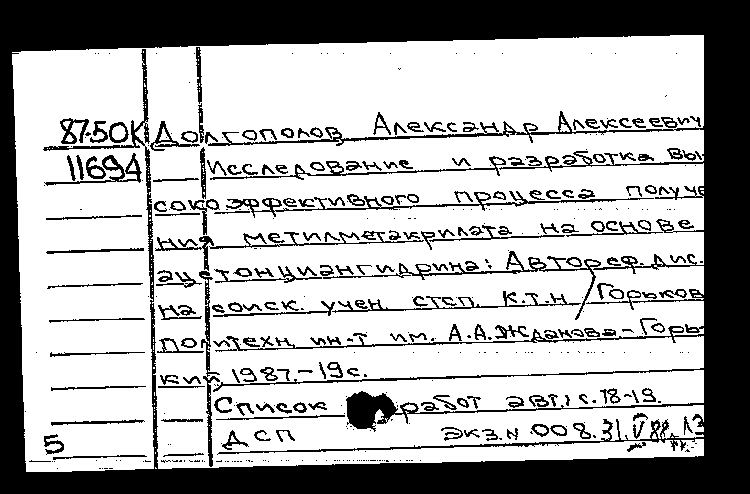 87-50К Долгополов Александр Алексеевич
11694 Исследование и разработка вы-
сокоэффективного процесса получе
ния метилметакрилата на основе
ацетонциангидрина: Автореф. дис.
на соиск. учен. степ. к.т.н/Горьков
политехн. ин-т им. А.А.Жданова-Горь-
кий 1987.-19с.
Список работ авт., с.18-19.
5 ДСП Экз.N 008. 31.V 88.